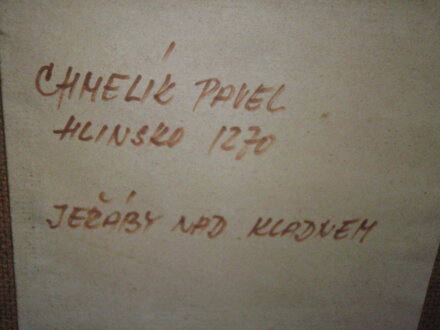 CHMELÍK PAVEL
HLINSKO 1270
JEŘÁBY NAD KLADNEM